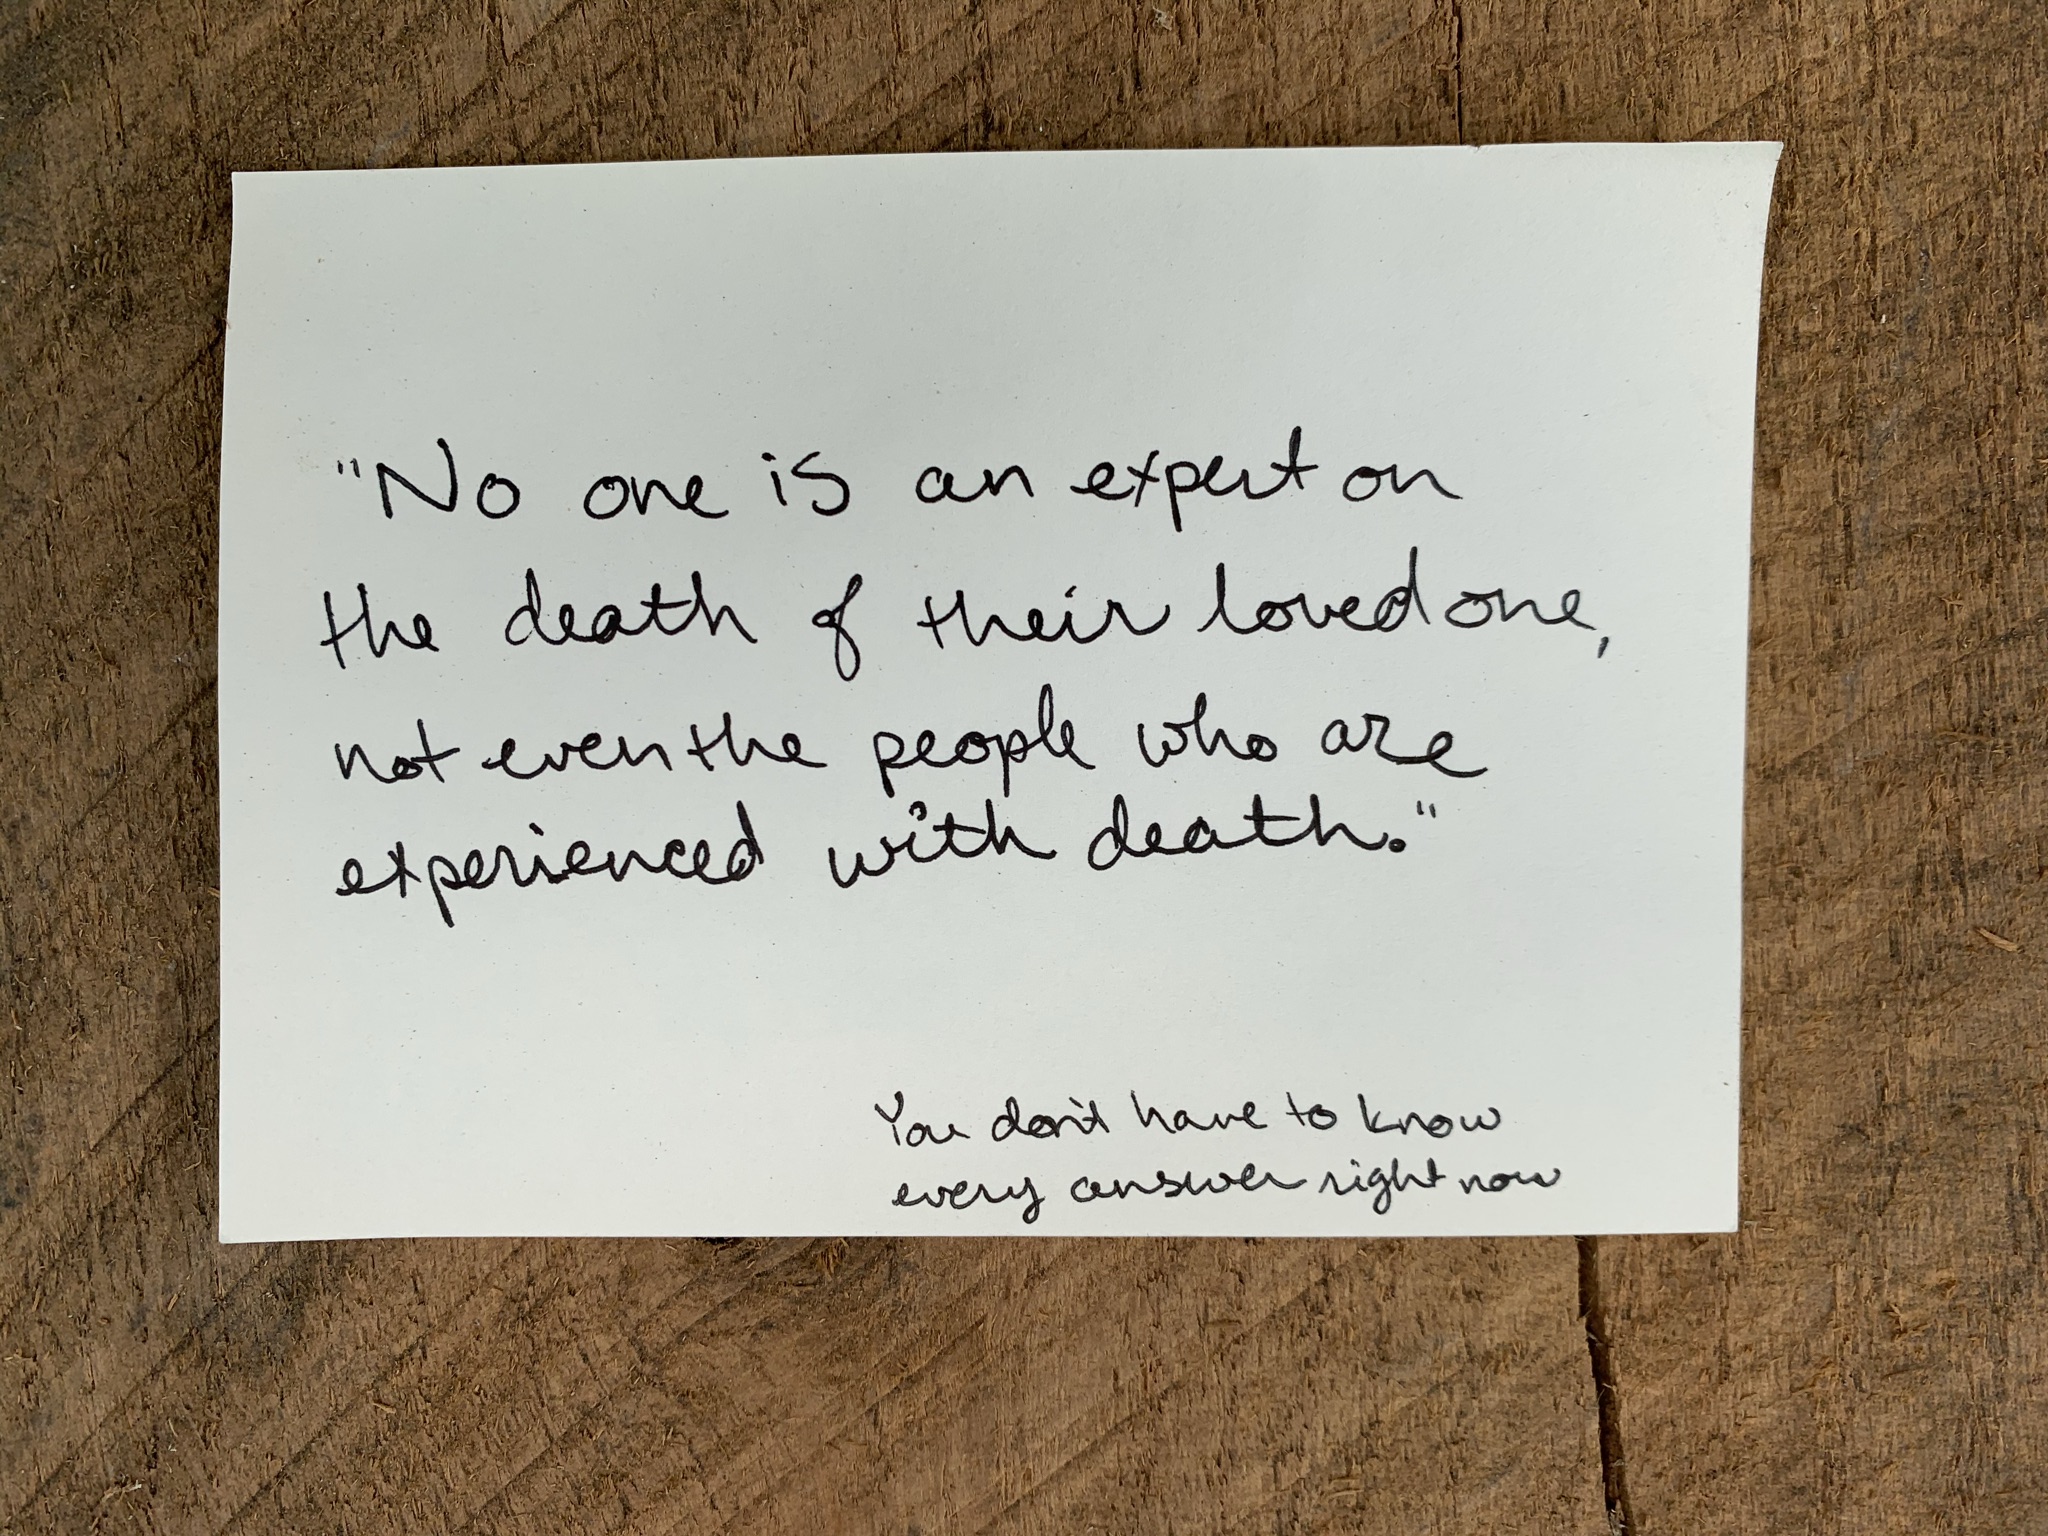 "No one is an expert on
the death of their loved one,
not even the people who are
experienced with death."
You don't have to know
every answer right now